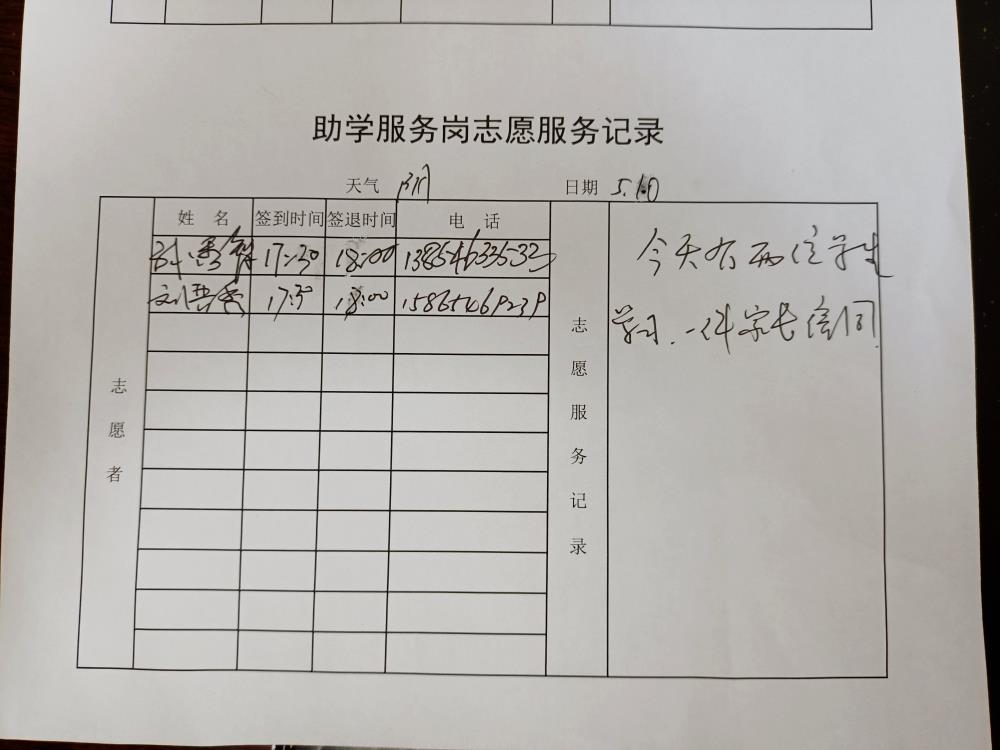 助学服务岗志愿服务记录
天气 阴 日期 5.10
志愿者 姓名 签到时间 签退时间 电话 志愿服务记录
17:30 18:00 13854633533
刘 17:30 18:00 15865469239
今天有两位学生
学习.一位家长陪同.